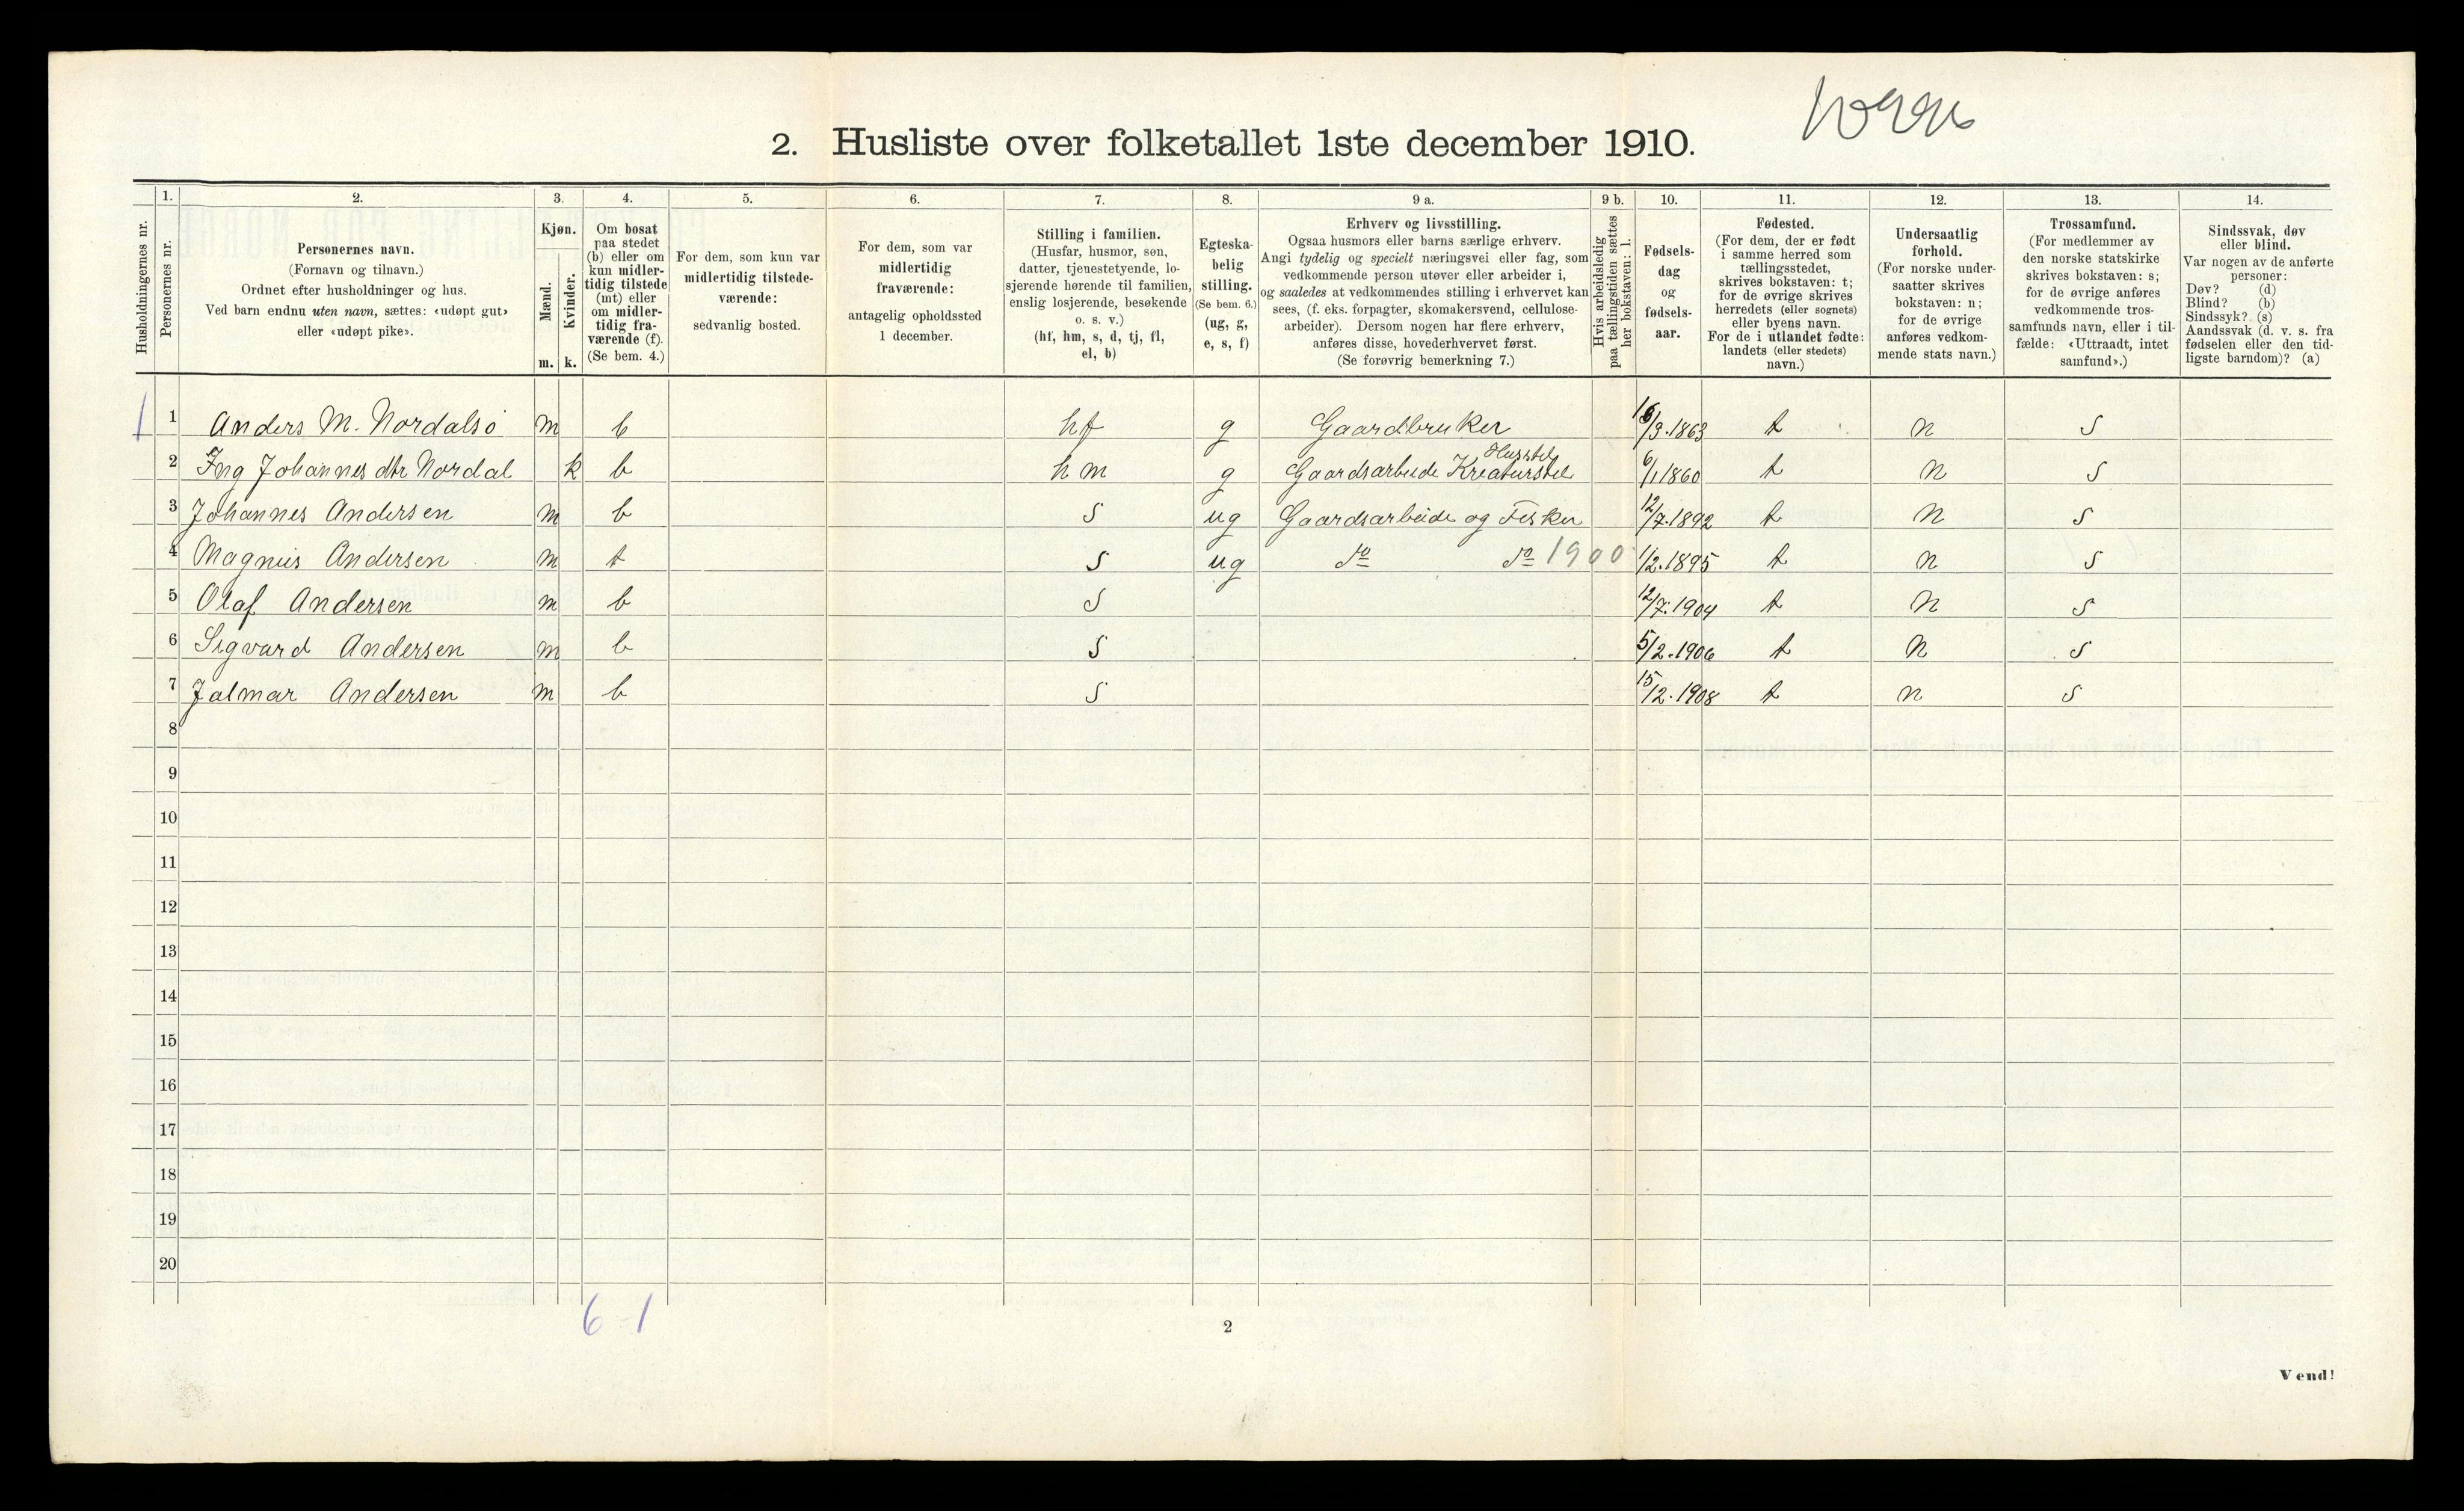 2. Husliste over folketallet 1ste december 1910.
Husholdningernes nr.
1.
Personernes nr.
2.
Personernes navn.
(Fornavn og tilnavn.)
Ordnet efter husholdninger og hus.
Ved barn endnu uten navn, sættes: «udøpt gut»
eller «udøpt pike».
3.
Kjøn.
Mænd.
Kvinder.
m. k.
4.
Om bosat
paa stedet
(b) eller om
kun midler-
tidig tilstede
(mt) eller
om midler-
tidig fra-
værende (f).
(Se bem. 4.)
5.
For dem, som kun var
midlertidig tilstede-
værende:
sedvanlig bosted.
6.
For dem, som var
midlertidig
fraværende:
antagelig opholdssted
1 december.
7.
Stilling i familien.
(Husfar, husmor, søn,
datter, tjenestetyende, lo-
sjerende hørende til familien,
enslig losjerende, besøkende
o. s. v.)
(hf, hm, s, d, tj, fl,
el, b)
8.
Egteska-
belig
stilling.
(Se bem. 6.)
(ug, g,
e, s, f)
9 a.
Erhverv og livsstilling.
Ogsaa husmors eller barns særlige erhverv.
Angi tydelig og specielt næringsvei eller fag, som
vedkommende person utøver eller arbeider i,
og saaledes at vedkommendes stilling i erhvervet kan
sees, (f. eks. forpagter, skomakersvend, cellulose-
arbeider). Dersom nogen har flere erhverv,
anføres disse, hovederhvervet først.
(Se forøvrig bemerkning 7.)
9 b.
Hvis arbeidsledig
paa tællingstiden sættes
her bokstaven: l.
10.
Fødsels-
dag
og
fødsels-
aar.
11.
Fødested.
(For dem, der er født
i samme herred som
tællingsstedet,
skrives bokstaven: t;
for de øvrige skrives
herredets (eller sognets)
eller byens navn.
For de i utlandet fødte:
landets (eller stedets)
navn.)
12.
Undersaatlig
forhold.
(For norske under-
saatter skrives
bokstaven: n;
for de øvrige
anføres vedkom-
mende stats navn.)
13.
Trossamfund.
(For medlemmer av
den norske statskirke
skrives bokstaven: s;
for de øvrige anføres
vedkommende tros-
samfunds navn, eller i til-
fælde: «Uttraadt, intet
samfund».)
14.
Sindssvak, døv
eller blind.
Var nogen av de anførte
personer:
Døv? (d)
Blind? (b)
Sindssyk? (s)
Aandssvak (d. v. s. fra
fødselen eller den tid-
ligste barndom)? (a)
1 1 Anders M. Nordalsø m b hf g Gaardbruker /3.1863 t n s
Husstel
2 Ing Johannes dtr Nordal k b hm g Gaardsarbeide Kreaturstel 6/1 1860 t n s
3 Johannes Andersen m b s ug Gaardsarbeide og Fisker 12/7.1892 t n s
4 Magnus Andersen m t s ug do do 1900 1/2.1895 t n s
5 Olaf Andersen m b s 12/7.1904 t n s
6 Sigvard Andersen m b s 5/2.1906 t n s
7 Jalmar Andersen m b s 15/12.1908 t n s
8
9
10
11
12
13
14
15
16
17
18
19
20
6-1
2
Vend!